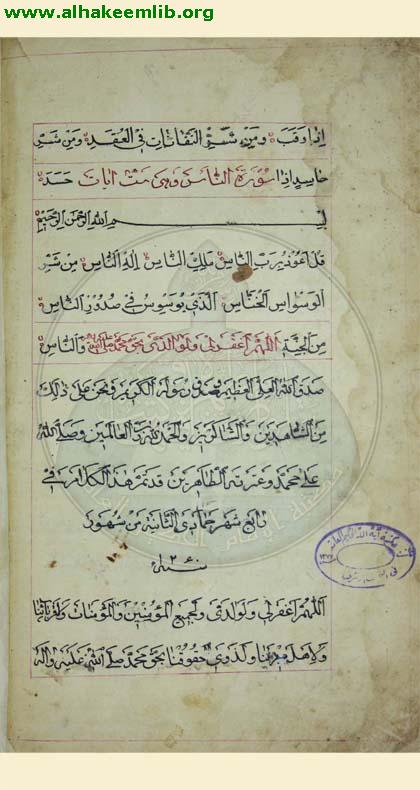 www.alhakeemlib.org
اذا وقب ومن شر النفاثات في العقد ومن شر
حاسد اذا سورة الناس وهي ست ايات حسد
بسم الله الرحمن الرحيم
قل اعوذ برب الناس ملك الناس اله الناس من شر
الوسواس الخناس الذي يوسوس في صدور الناس
من الجنة اللهم اغفر لي ولوالدي بحق محمد والناس
صدق الله العلي العظيم وصدق رسوله الكريم ونحن على ذلك
من الشاهدين والشاكرين والحمد لله رب العالمين وصلى الله
على محمد وعترته الطاهرين قد تم هذ الكلام في
شهر جمادي الثانية من شهور
سنة
اللهم اغفر لي ولوالدي ولجميع المؤمنين والمؤمنات
ولاهل ولذوي حقوقنا بحق محمد صلى الله عليه وآله